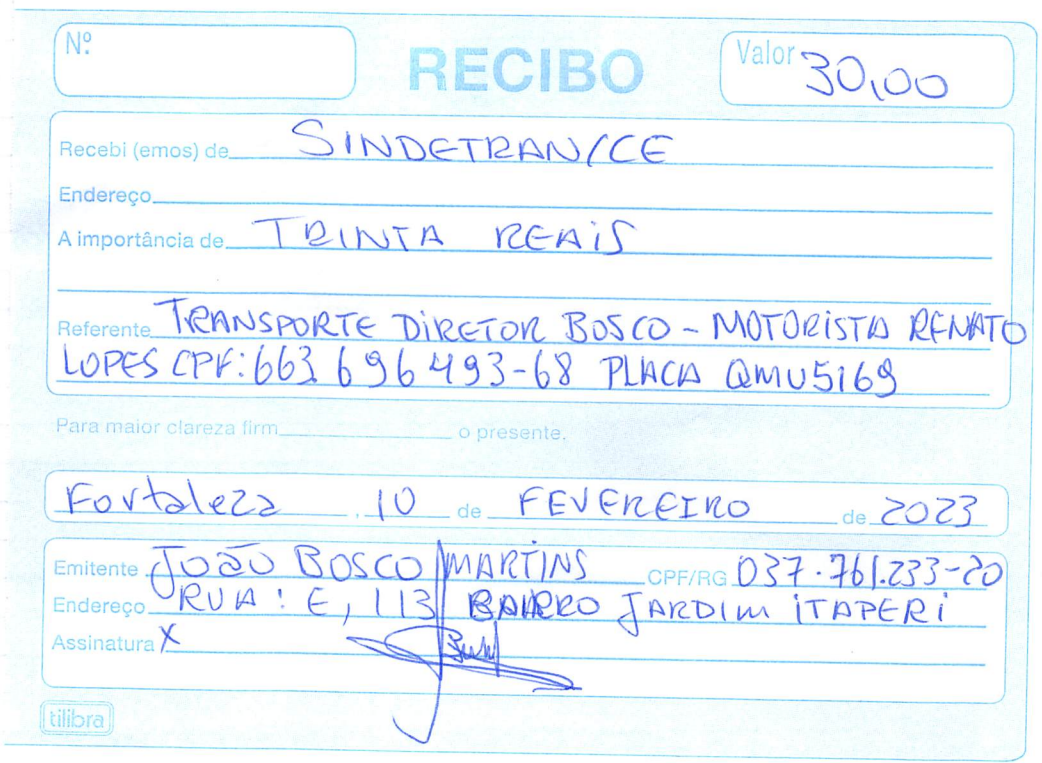 Nº
RECIBO
Valor 30,00
Recebi (emos) de SINDETRAN/CE
Endereço
A importância de TRINTA REAIS
Referente TRANSPORTE DIRETOR BOSCO - MOTORISTA RENATO
LOPES CPF: 663 696 493-68 PLACA QMU5169
Para maior clareza firm o presente.
Fortaleza , 10 de FEVEREIRO de 2023
Emitente JOÃO BOSCO MARTINS CPF/RG 037.761.233-20
Endereço RUA: E, 113 BAIRRO JARDIM ITAPERI
Assinatura X
tilibra